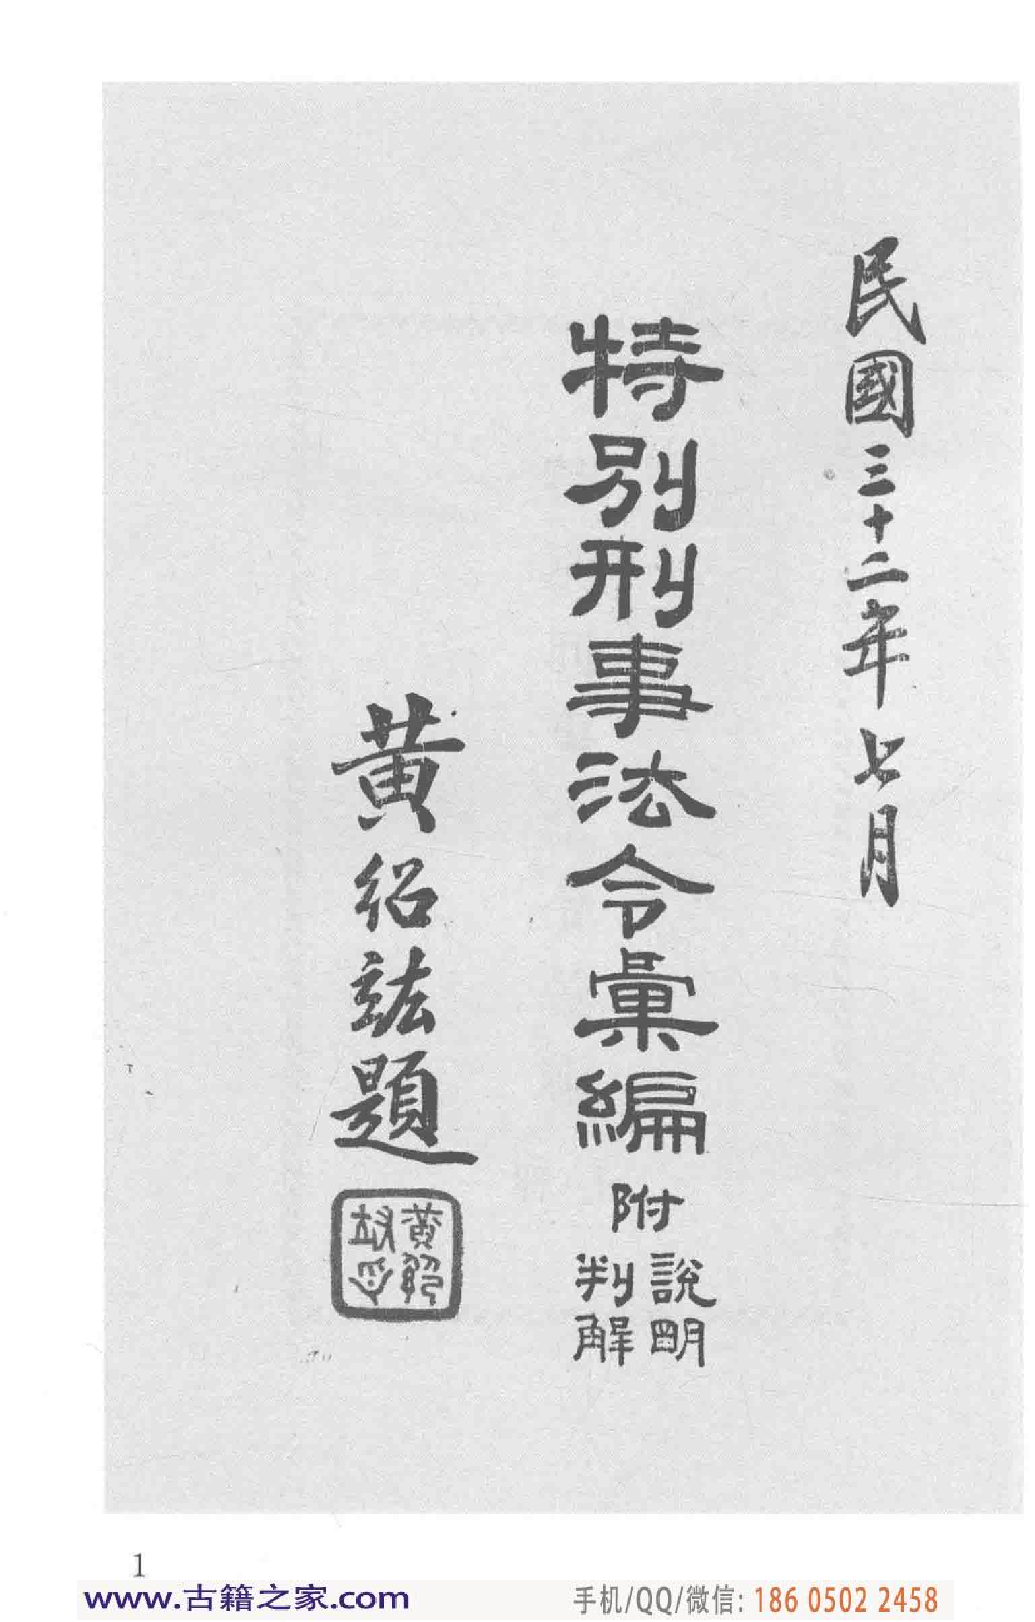 民國三十二年七月
特別刑事法令彙編 附 說明 判解
黃紹竑題
黃紹竑印
1
www.古籍之家.com
手机/QQ/微信: 186 0502 2458